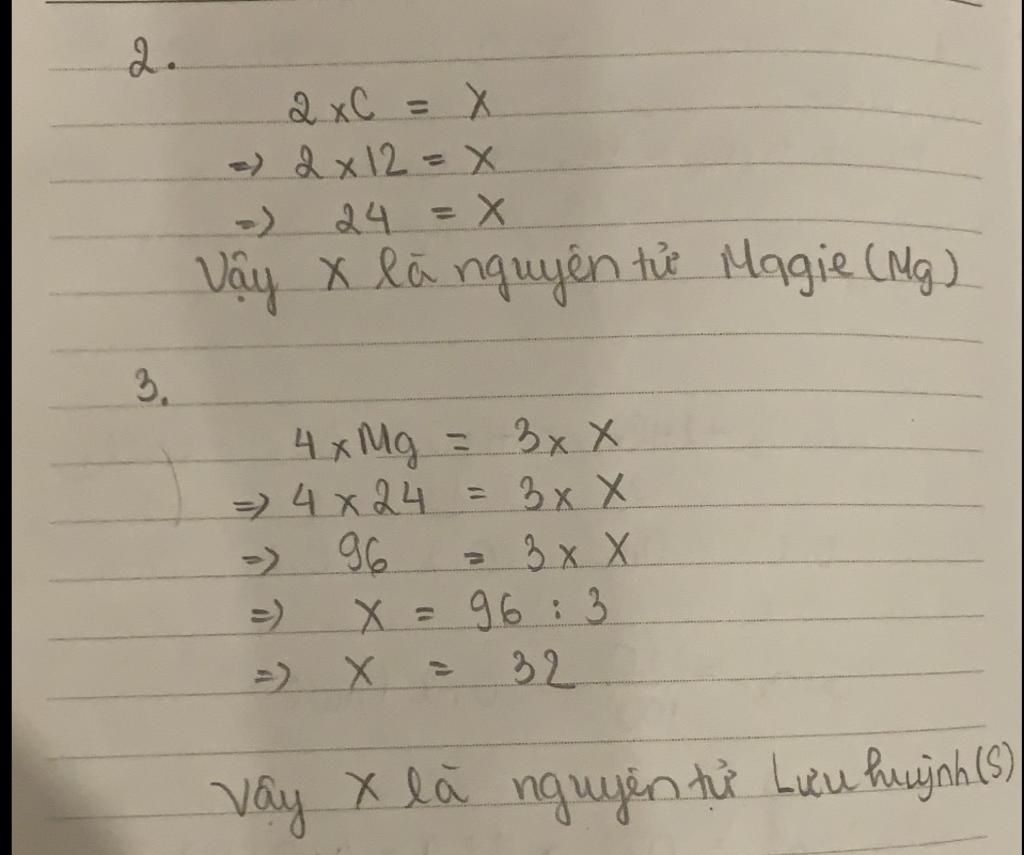 2.
2 x C = X
=> 2 x 12 = X
=> 24 = X
Vậy X là nguyên tử Magie (Mg)
3.
4 x Mg = 3 x X
=> 4 x 24 = 3 x X
=> 96 = 3 x X
=> X = 96 : 3
=> X = 32
Vậy X là nguyên tử Lưu huỳnh (S)